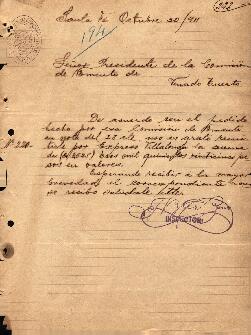 Santa Fe Octubre 30/911
194
222
Señor Presidente de la Comisión
de Fomento de
Venado Tuerto
De acuerdo con el pedido
hecho por esa Comisión de Fomento
en nota del 23 de me es grato remi-
tirle por Expreso Villalonga la suma
de mil quinientos veinticinco pe-
sos en valores.
Esperando recibir a la mayor
brevedad el correspondiente
recibo salúdale Atte.
INSPECTOR